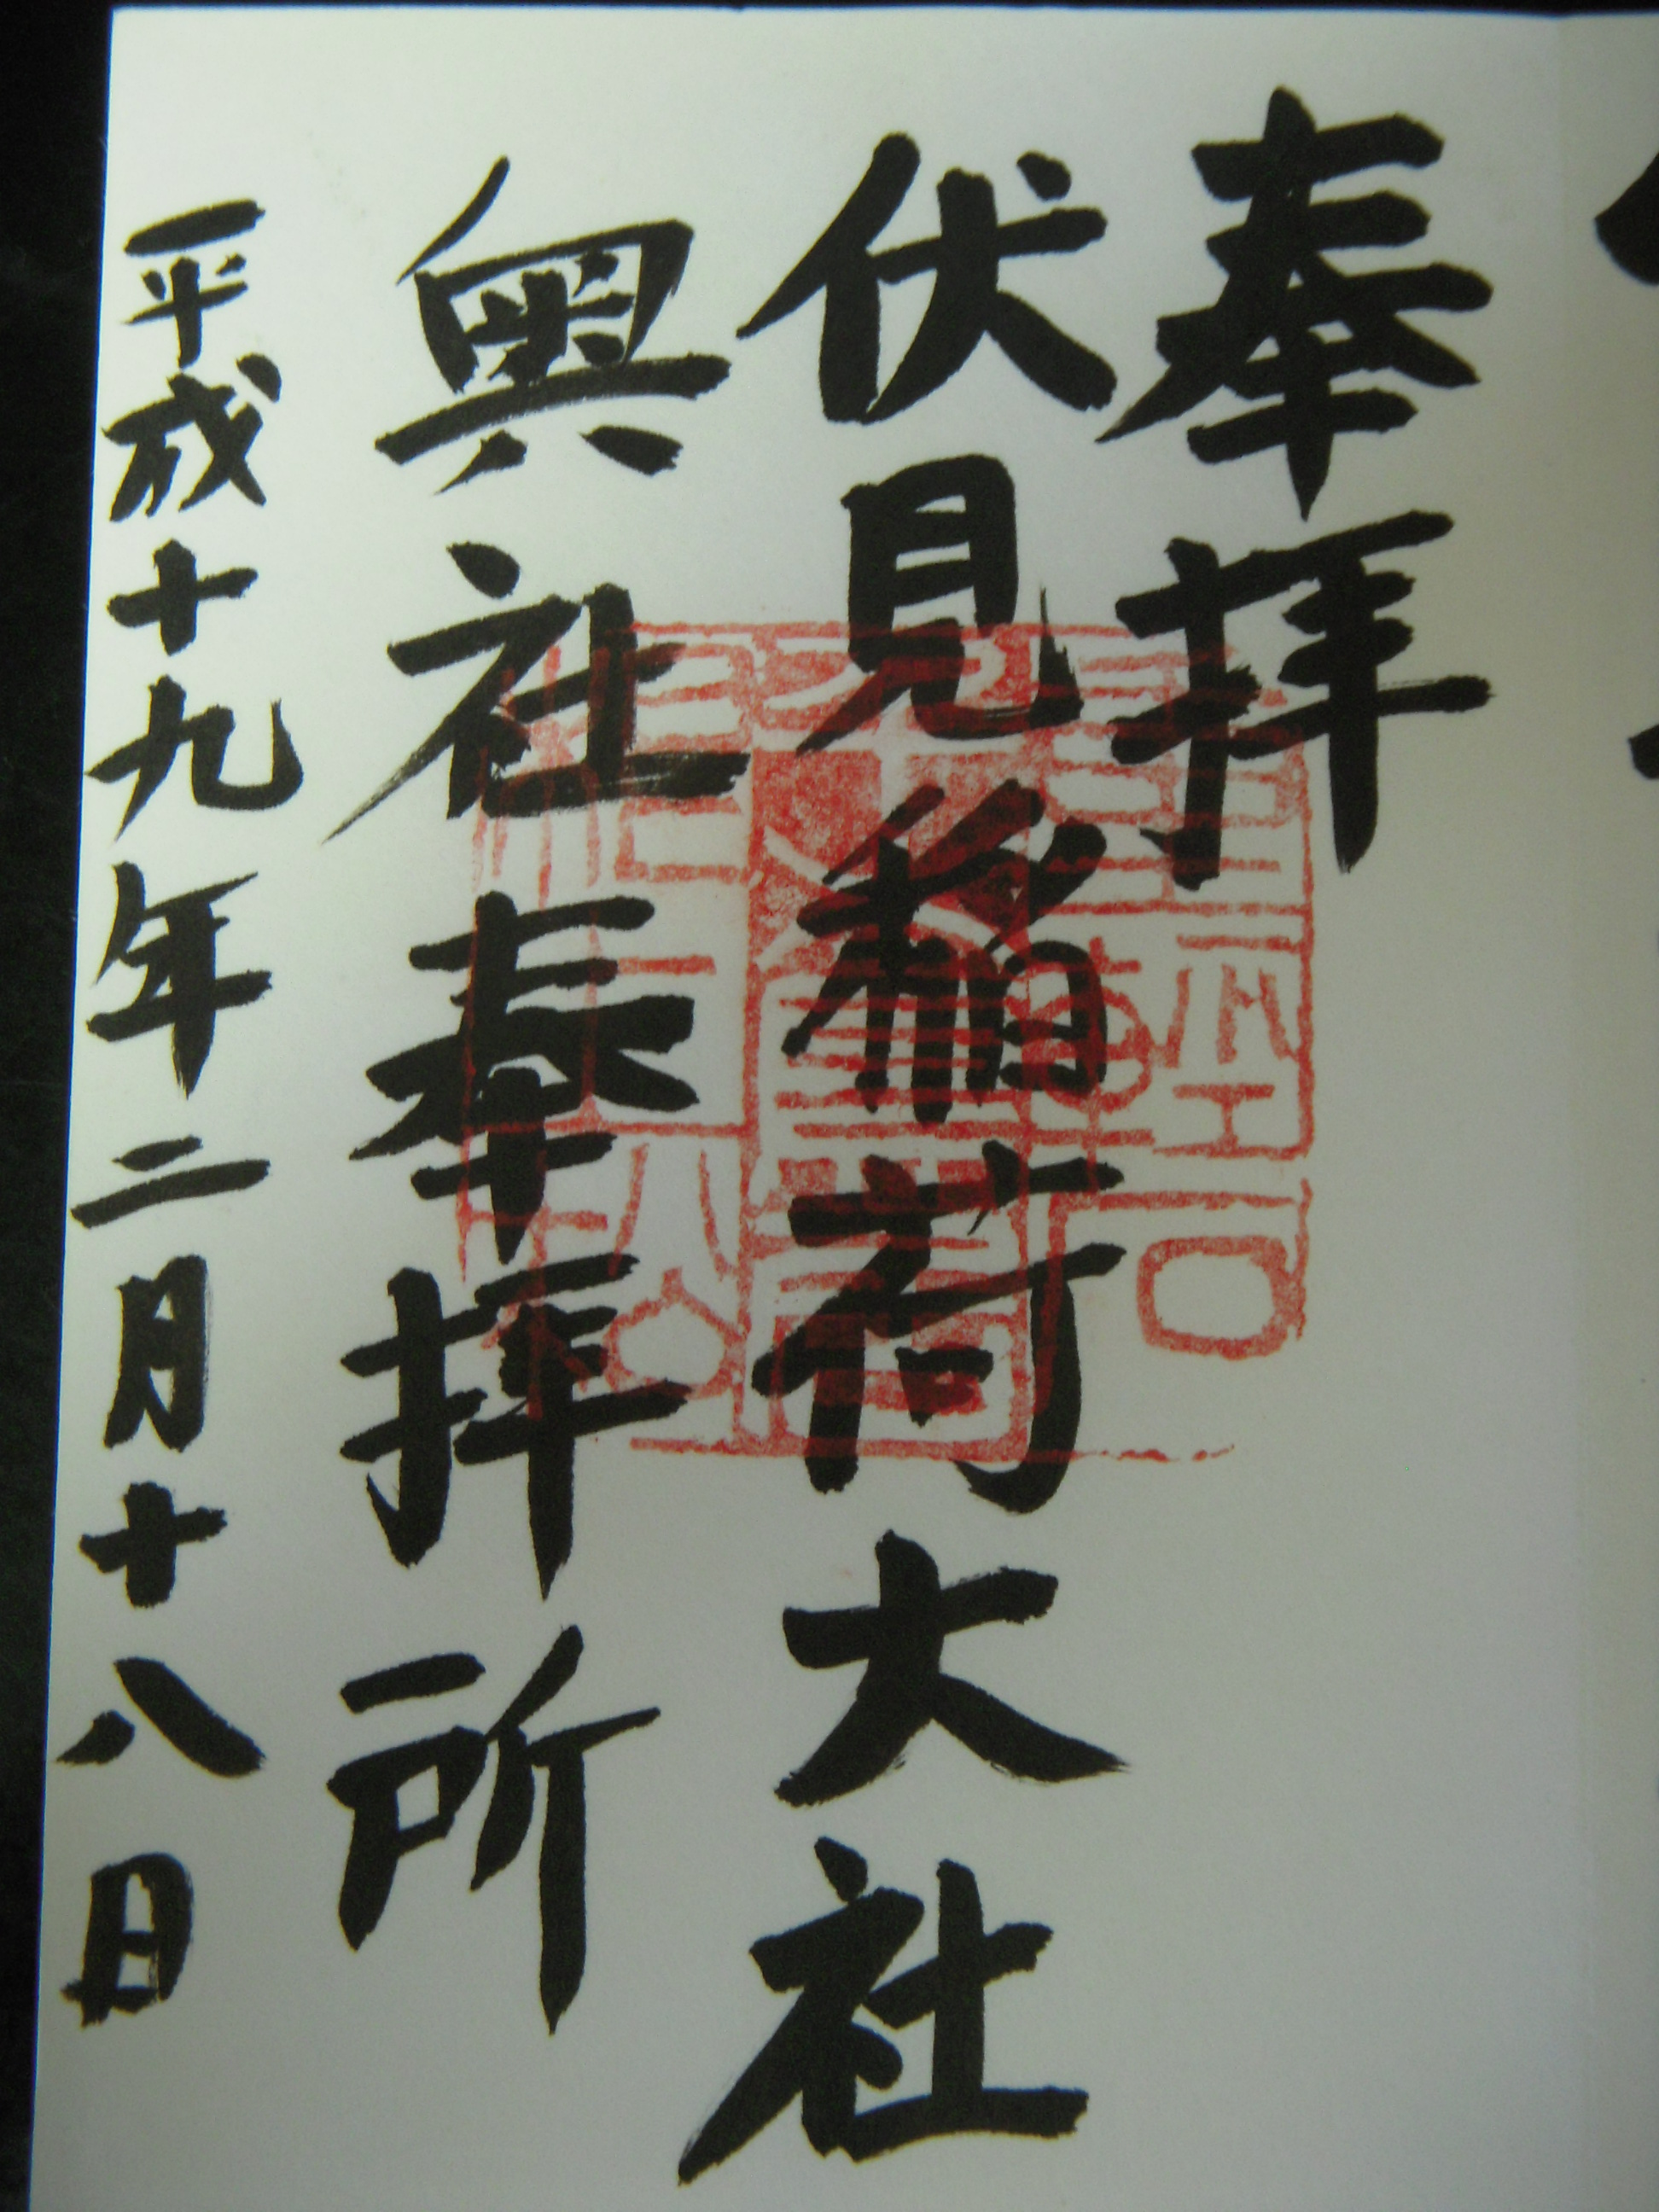 奉拝
伏見稲荷大社
奥社奉拝所
平成十九年二月十八日